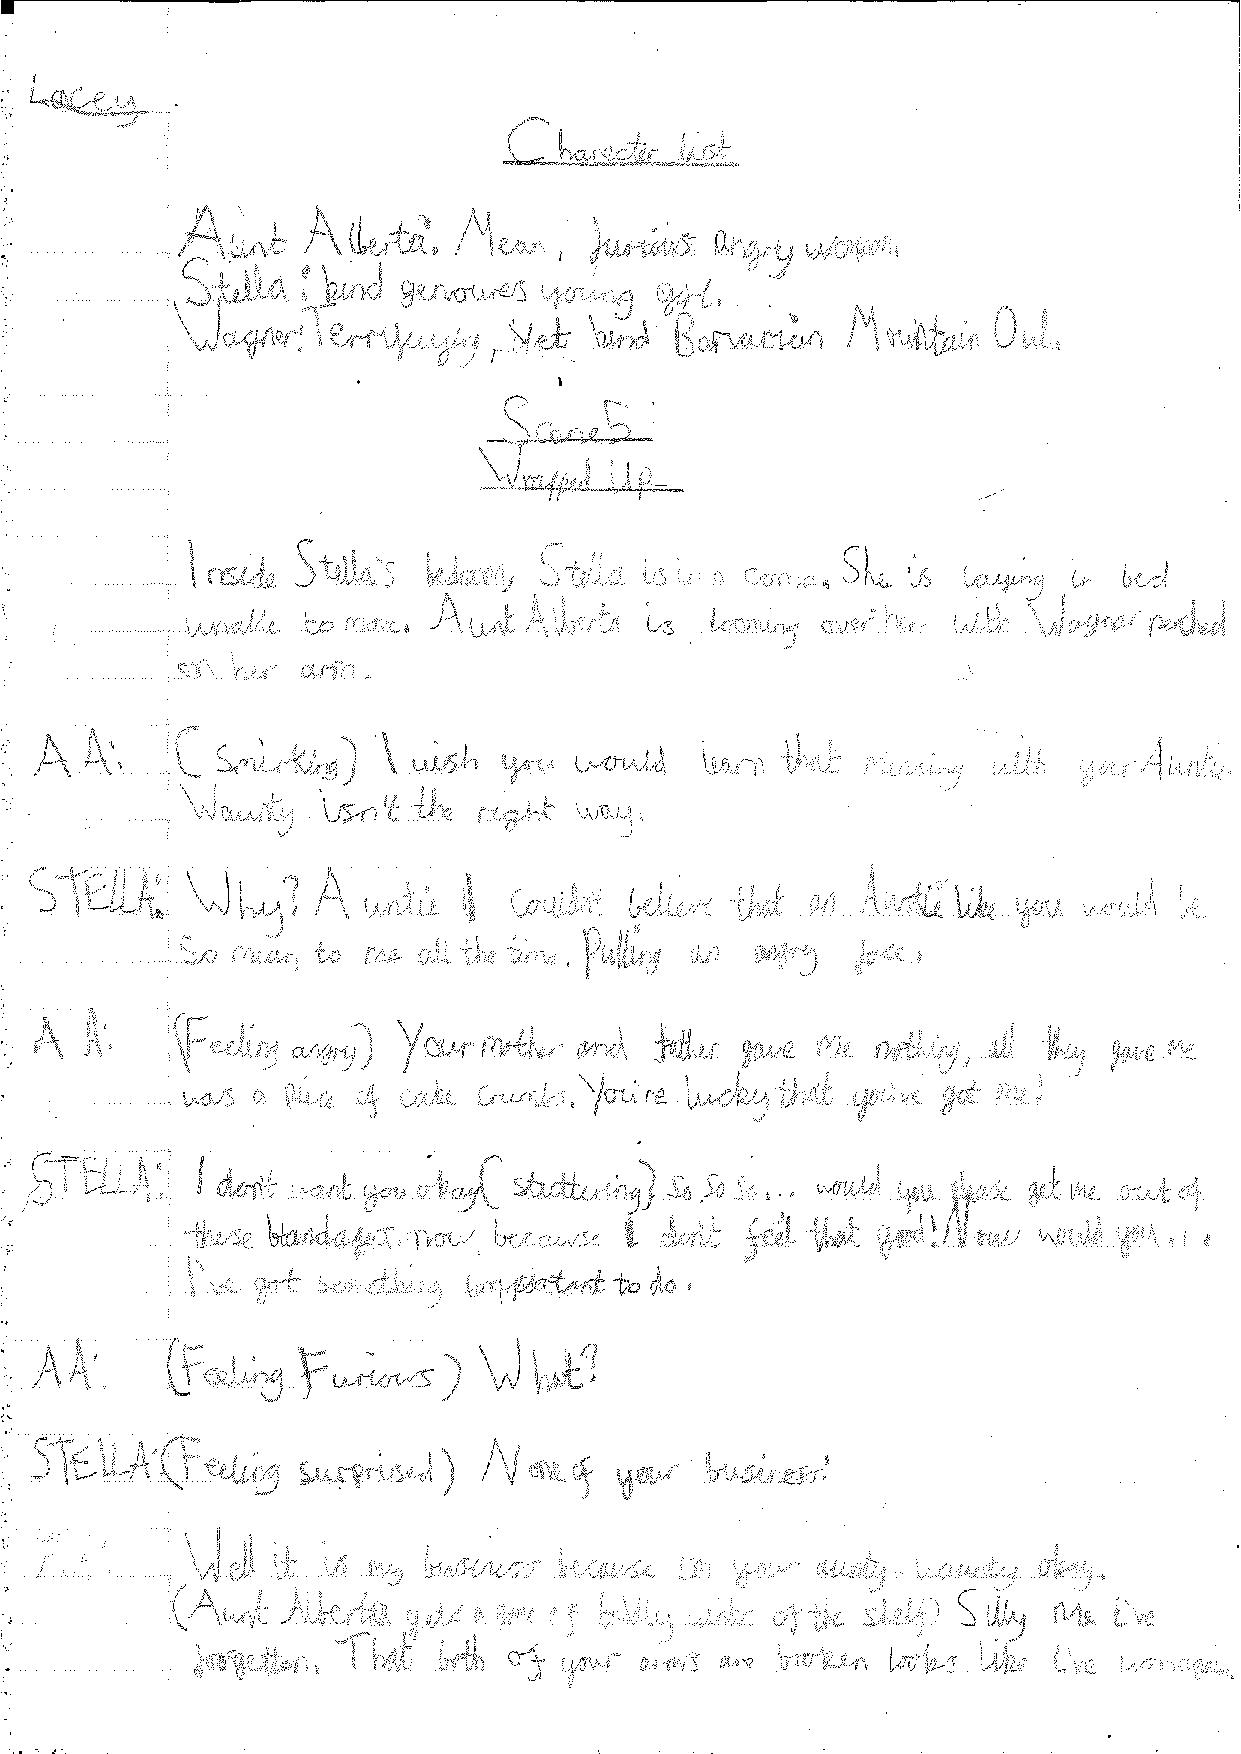 Lacey
Character List
Aunt Alberta: Mean, furious angry woman.
Stella: kind genoures young girl.
Wagner: Terrifying, Yet kind Barvarian Mountain Owl.
Scene 5
Wrapped Up
Inside Stella's bedroom, Stella is in a coma. She is laying in bed
unable to move. Aunt Alberta is looming over her with Wagner perched
on her arm.
AA: (Smirking) I wish you would learn that messing with your Auntie
Waunty isn't the right way.
STELLA: Why? Auntie I couldn't believe that an Auntie like you would be
so mean to me all the time. Pulling an angry face.
AA: (Feeling angry) Your mother and father gave me nothing, all they gave me
was a piece of cake crumbs. You're lucky that you've got me!
STELLA: I don't want you okay (stuttering) So So So... would you please get me out of
these bandages now because I don't feel that good! Now would you...
I've got something important to do.
AA: (Feeling Furious) What?
STELLA: (Feeling surprised) None of your business!
Well it is my business because I'm your aunty waunty okay.
(Aunt Alberta a of the shelf) Silly Me I've
forgotten. That both of your arms are broken looks like I've